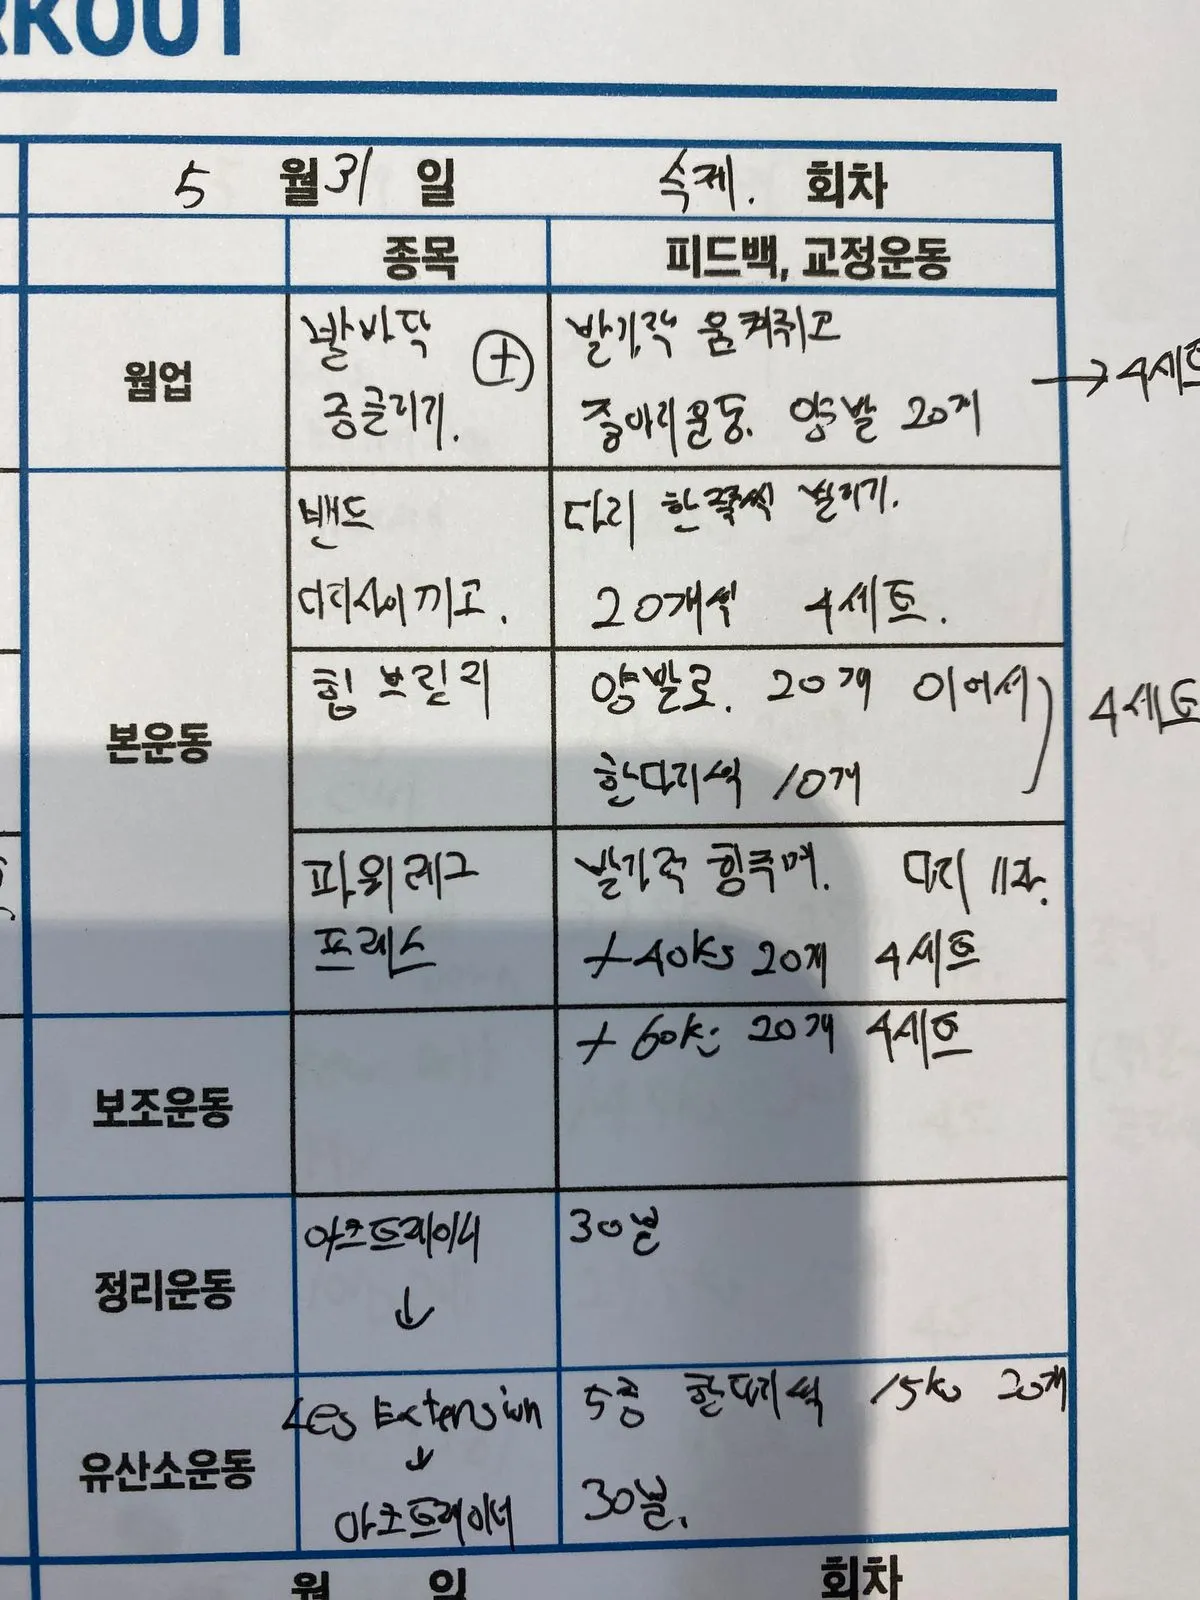 RKOUT
5 월 31 일 숙제. 회차
종목 피드백, 교정운동
웜업
발바닥 ⊕ 발가락 움켜쥐고 → 4세트
종글리기. 종아리운동. 양발 20개
본운동
밴드 다리 한쪽씩 벌리기.
다리사이 끼고. 20개씩 4세트.
힙 브릿지 양발로. 20개 이어서
한다리씩 10개 4세트
파워레그 발가락 힘주며. 다리 11자.
프레스 +40kg 20개 4세트
+60kg 20개 4세트
보조운동
정리운동
아크트레이너 30분
↓
유산소운동
Leg Extension 5중 한다리씩 15kg 20개
↓
아크트레이너 30분.
월 일 회차